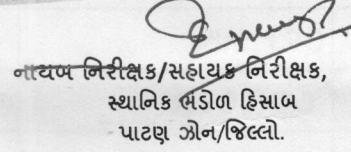 નાયબ નિરીક્ષક/સહાયક નિરીક્ષક,
સ્થાનિક ભંડોળ હિસાબ
પાટણ ઝોન/જિલ્લો.